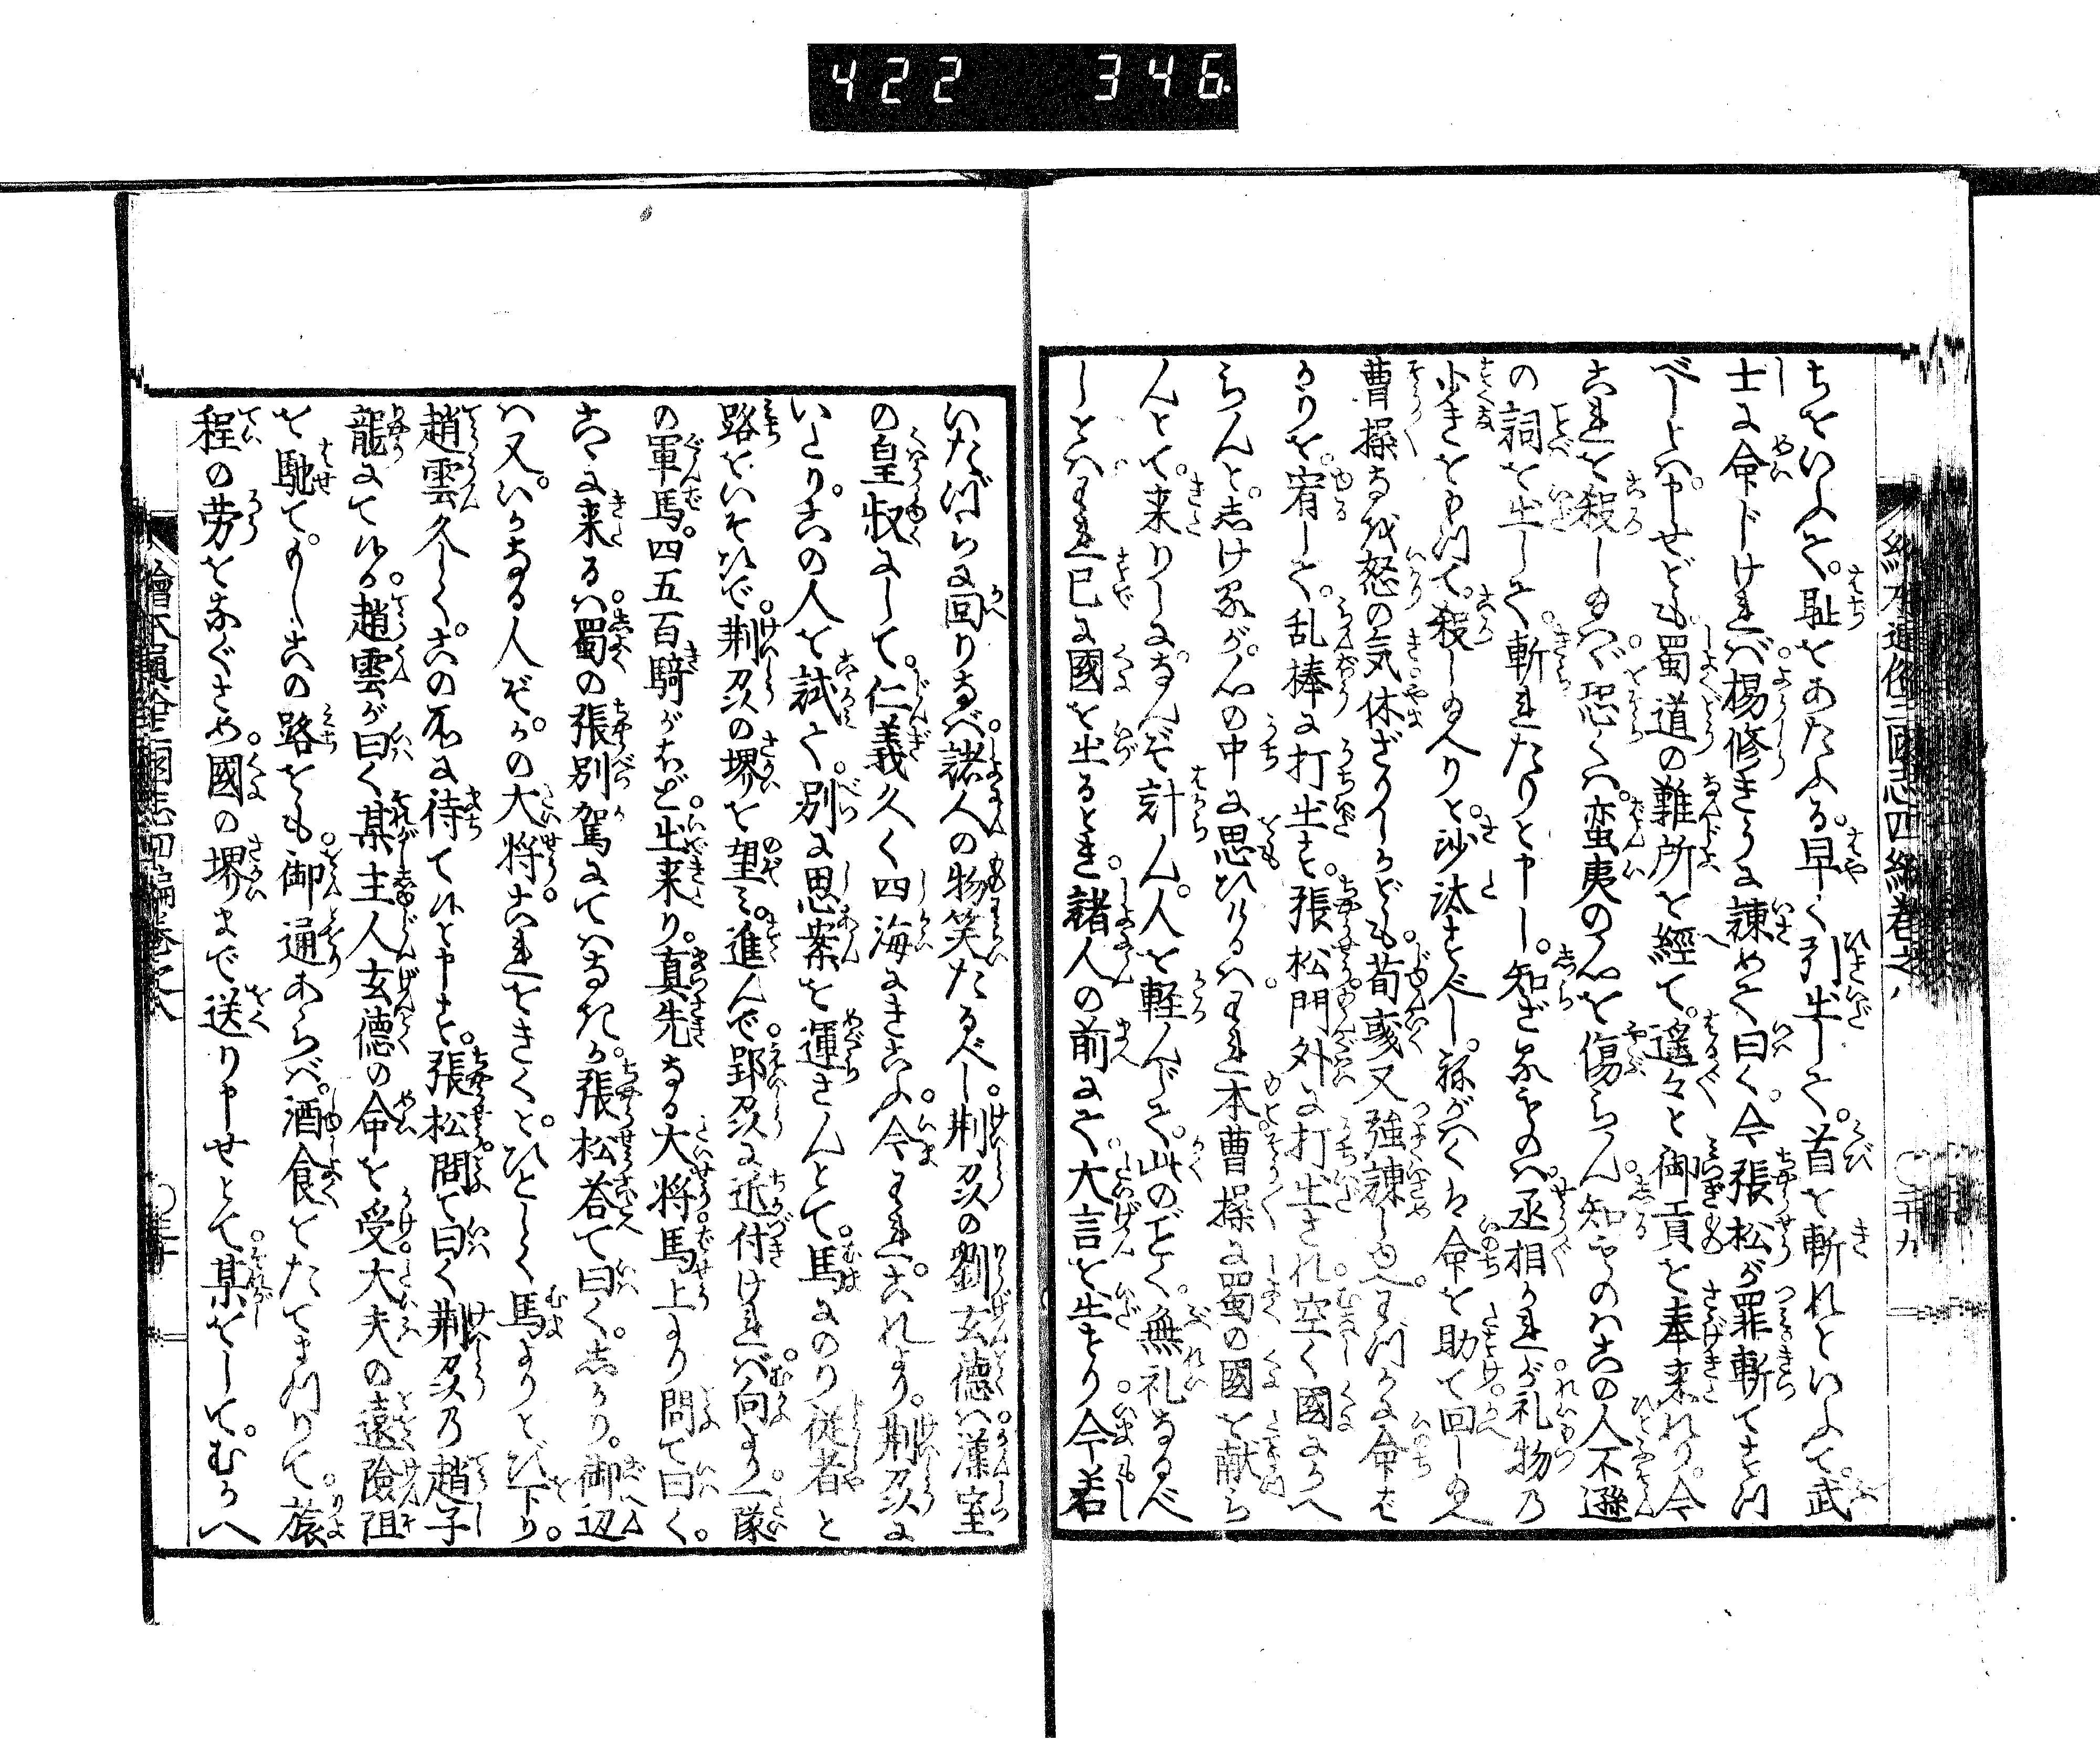 422 346
絵本通俗三國志四編卷之八 〇二十九
ちをいふて。耻をあたふる早く引出して。首を斬れといふて。武
士に命じければ楊修きうに諫めて曰く。今張松が罪斬てすつ
べしとハ申せども。蜀道の難所を經て。遥々と御貢を奉来れり。今
これを殺し給ハヾ恐くハ。蛮夷の心を傷らん。知ものハこの人不遜
の詞を出して。斬れたりと申し。知ざるものハ。丞相かれが礼物の
少きをもつて。殺し給へりと。沙汰すべし。祢がハくハ命を助て回し給へ
曹操なを怒の気休ざりしかども。荀彧又強諫し申ゆへ。わづかに命ば
かりを宥して。乱棒に打出す。張松門外に打出され。空く國にかへ
らんと。しけるが。心の中に思ひけるハ。われ本曹操に蜀の國を献ら
んとて。来りしに。なんぞ計ん。人を軽んじて。此のごとく。無礼なるべ
しとハ。われ已に國を出るとき。諸人の前にて。大言を出せり。今若
いたづらに回りなバ。諸人の物笑たるべし。荆州の劉玄徳ハ。漢室
の皇叔にして。仁義久く四海にきこふ。今われ。これより。荆州に
いたり。この人を試て。別に思案を運さんとて。馬にのり従者と
路をいそひで。荆州の堺を望ミ。進んで。郢州に近付ければ。向より。一隊
の軍馬。四五百騎がほど。出来り。真先なる大将馬上より問て曰く。
これに来るハ。蜀の張別駕にてハなきか。張松答て曰く。しかり。御辺
ハ又。いかなる人ぞ。かの大将。これをきくと。ひとしく馬よりとび下り。
趙雲久しく。この所に待て候と申す。張松問て曰く荆州の趙子
龍にて候か。趙雲が曰く某主人玄徳の命を受。大夫の遠險阻
を馳て。もしこの路をも。御通あらバ。酒食をたてまつりて。旅
程の労をなぐさめ。國の堺まで送り申せとて。某をして。むかへ
繪本通俗三國志四編卷之八 〇三十